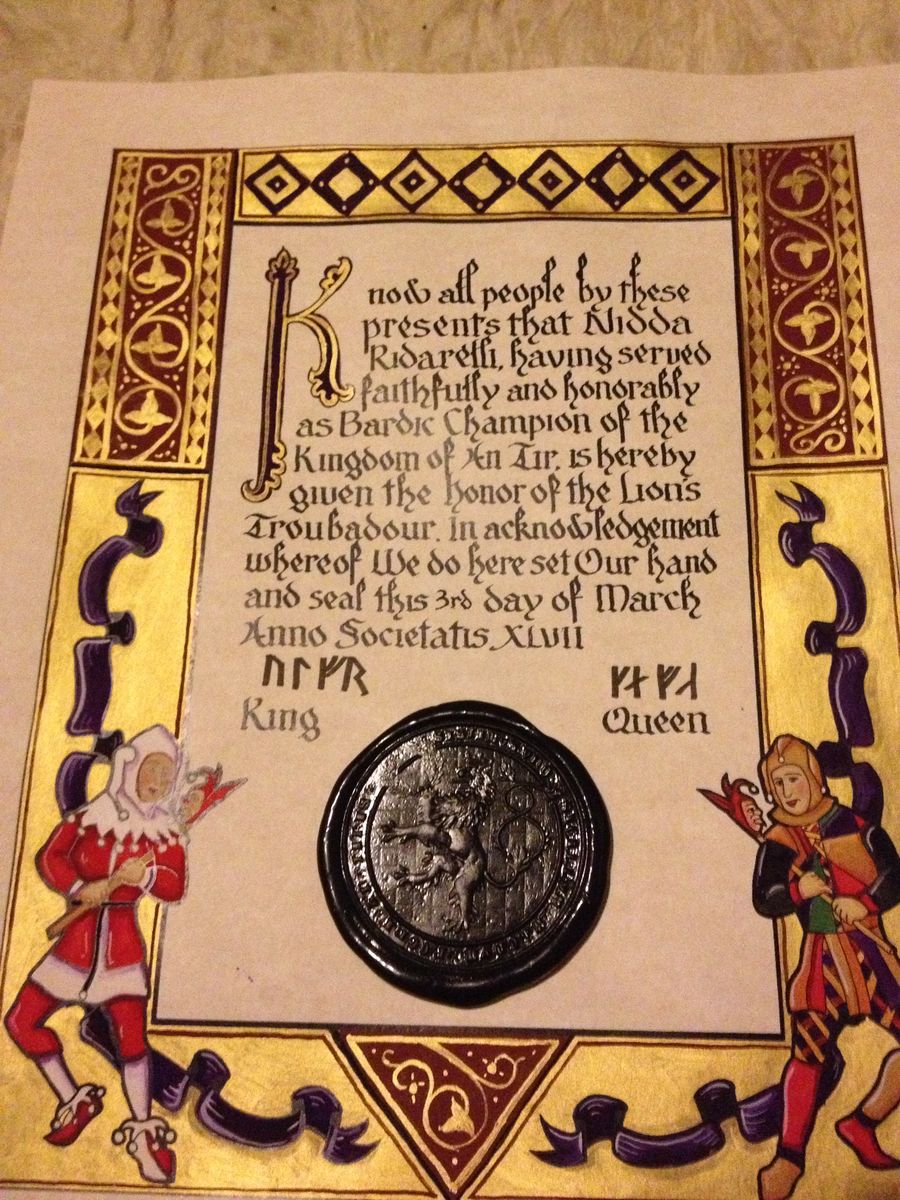 Know all people by these
presents that Nidda
Ridarelli, having served
faithfully and honorably
as Bardic Champion of the
Kingdom of An Tir, is hereby
given the honor of the Lion's
Troubadour. In acknowledgement
whereof We do here set Our hand
and seal this 3rd day of March
Anno Societatis XLVII
King
Queen